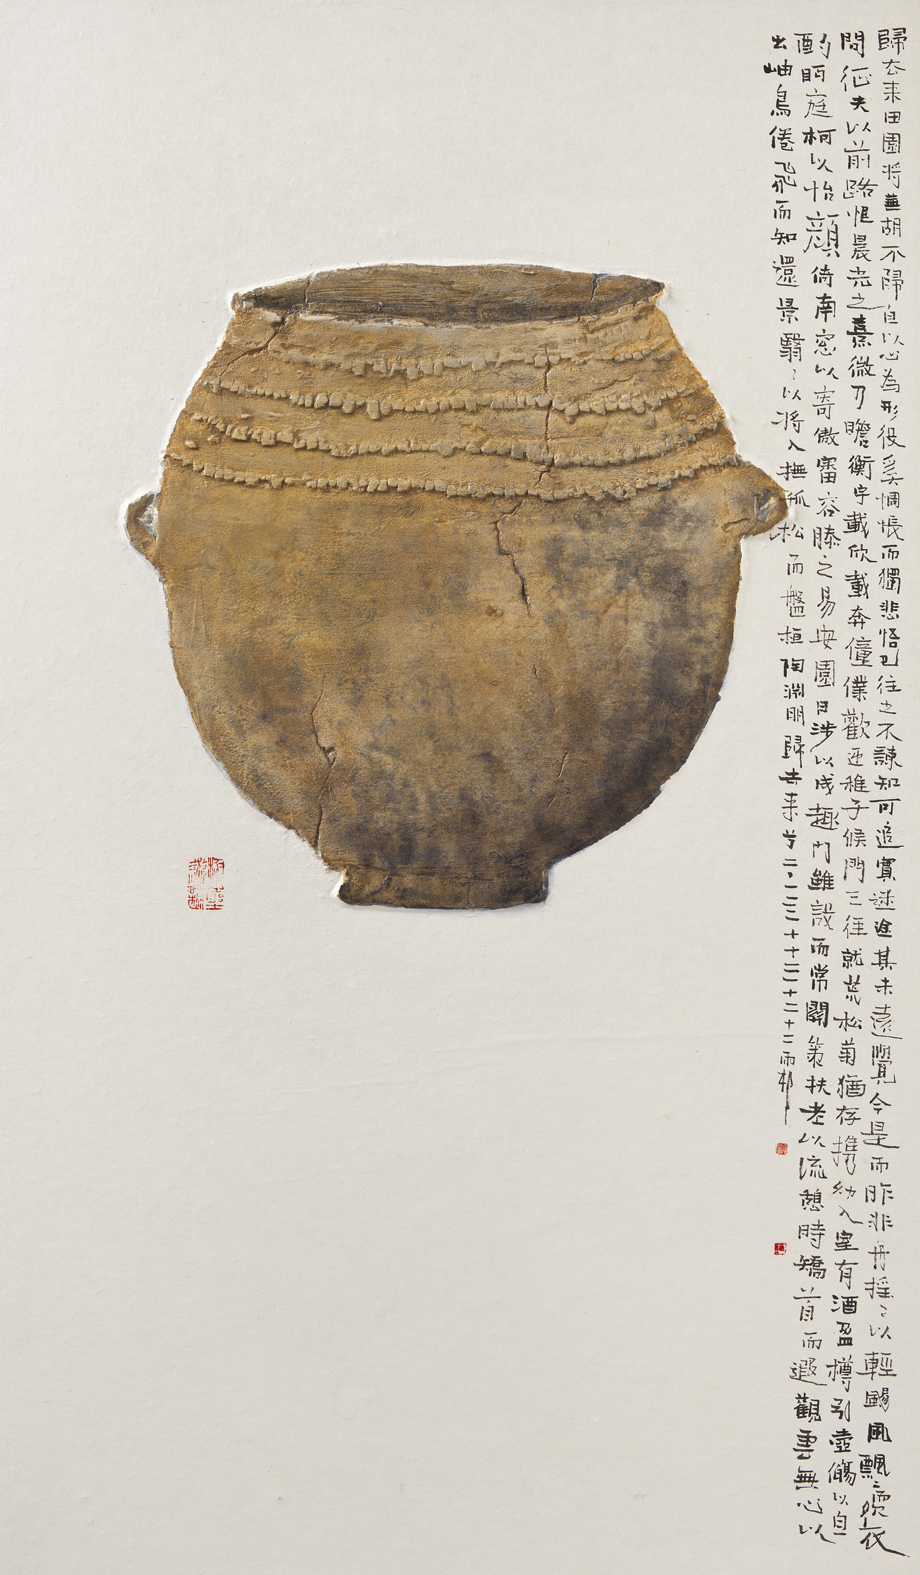 歸去来田園将蕪胡不歸自以心為形役奚惆悵而獨悲悟已往之不諫知可追實迷途其未遠覺今是而昨非舟摇〻以輕颺風飄〻而吹衣
問征夫以前路恨晨光之熹微乃瞻衡宇載欣載奔僮僕歡迎稚子候門三徑就荒松菊猶存携幼入室有酒盈樽引壺觴以自
酌眄庭柯以怡顔倚南窓以寄傲審容膝之易安園日涉以成趣門雖設而常關策扶老以流憩時矯首而遐觀雲無心以
出岫鳥倦飛而知還景翳〻以将入撫孤松而盤桓陶淵明歸去来兮 雨邨